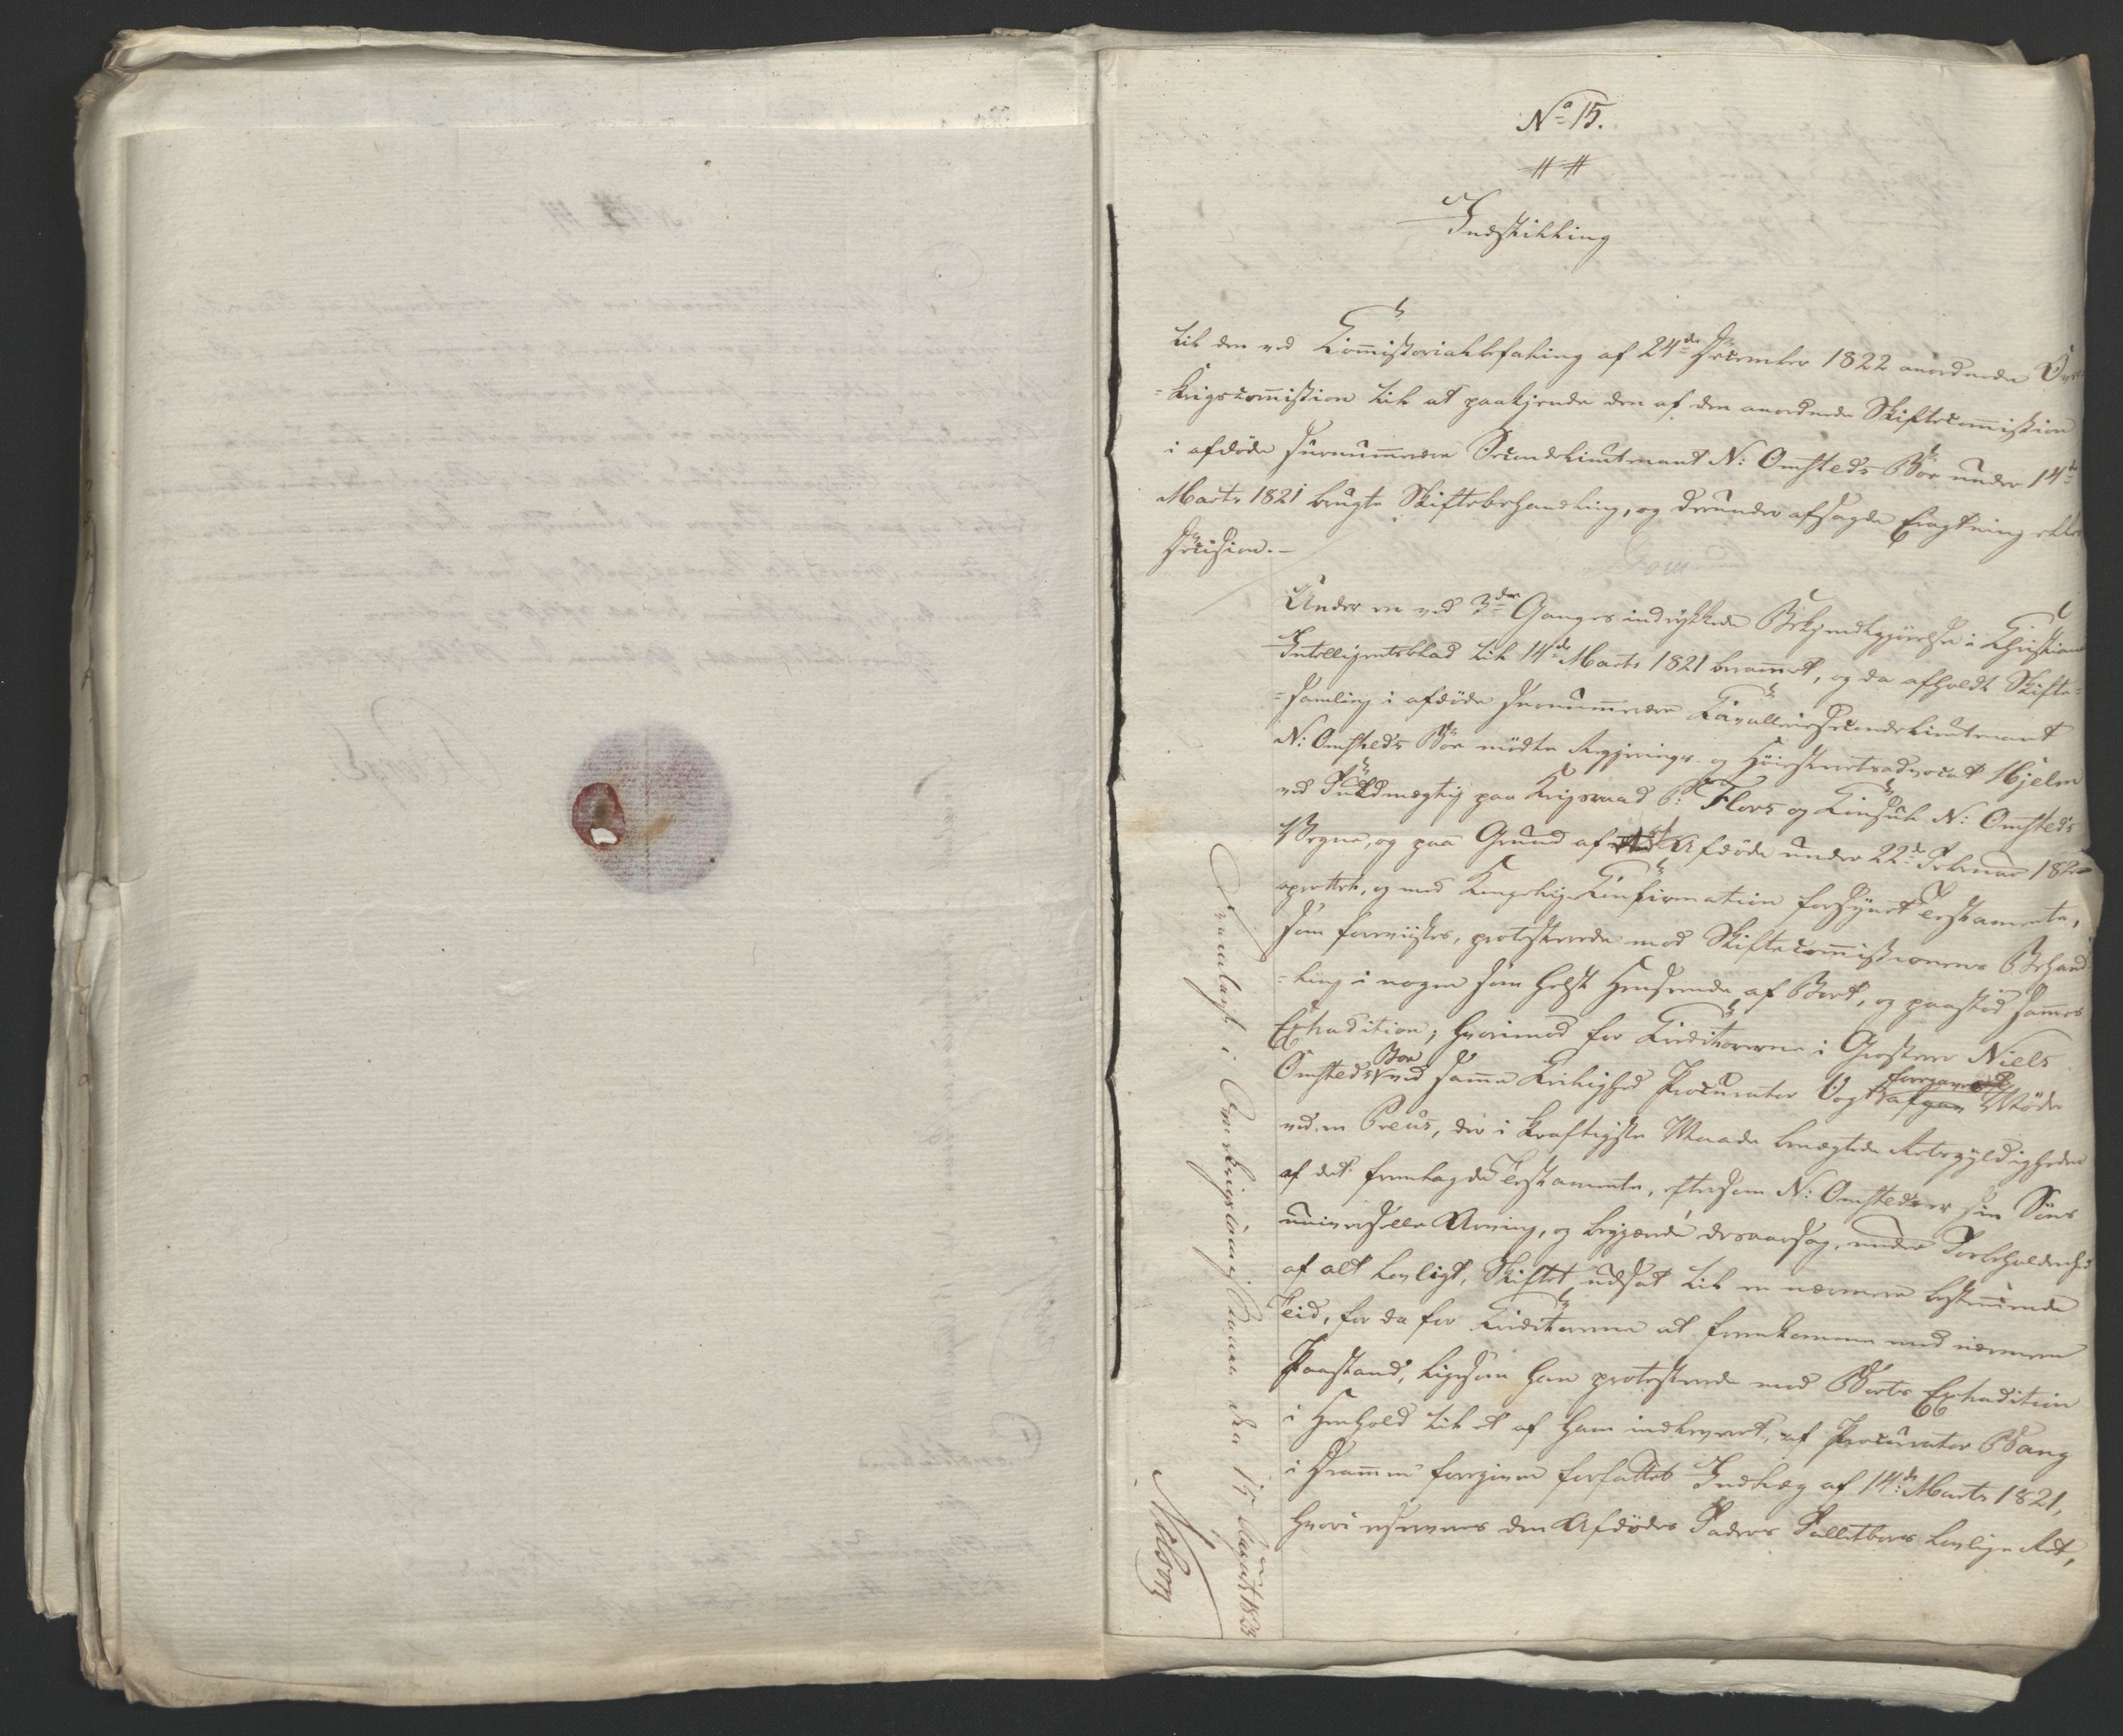 No 15.
##
Indstilling
til den ved Commissorialbefaling af 24de December 1822 anordnede Over-
=krigscommission til at paakjende den af den anordnede Skiftecommission
i afdöde surnummeraire Secondlieutenant N: Omsteds Boe under 14de
Marts 1821 brugte Skiftebehandling, og derunder afsagde Eragtning eller
Decision.—
Under en ved 3de Ganges indrykkede Bekjendtgjörelse i Christiania
Intelligentsblad til 14de Marts 1821 berammet, og da afholdt Skifte-
=samling i afdöde surnummeraire Cavallerie Secondlieutenant
N: Omsteds Boe mödte Regjerings- og Höiesteretsadvocat Hjelm
ved Fuldmægtig paa Krigsraad P: Flors og Consul N: Omsteds
Vegne, og paa Grund af Afdöde under 22de Februar 182
oprettet, og med Kongelig Confirmation forsynet Testamente,
som foreviistes, protesterede mod Skiftecommissionens Behand-
=ling i nogen som helst Henseende af Boet, og paastod sammes
Extradition; hvorimod for Creditorerne i Grosserer Niels
Omsteds Boe ved samme Leilighed Procurator Vogt foregav at Möde
ved en Preus, der i kraftigste Maade benægtede Retsgyldigheden
af det fremlagde Testamente, eftersom N: Omsted var sin Söns
universelle Arving, og begjærede desaarsag, under Forbeholdenhed
af alt lovligt, Skiftet udsat til en nærmere bestemmende
Tid, for da for Creditorerne at fremkomme med nærmere
Paastand, ligesom han protesterede mod Boets Extradition
i Henhold til et af ham indleveret, af Procurator Bang
i Drammen foregiven forfattet Indlæg af 14de Marts 1821,
hvori reserveres den Afdödes Faders Fallitboes lovlige Ret,
Fremlagt i Overkrigs Commissionen den 15 August 1823
Nilson